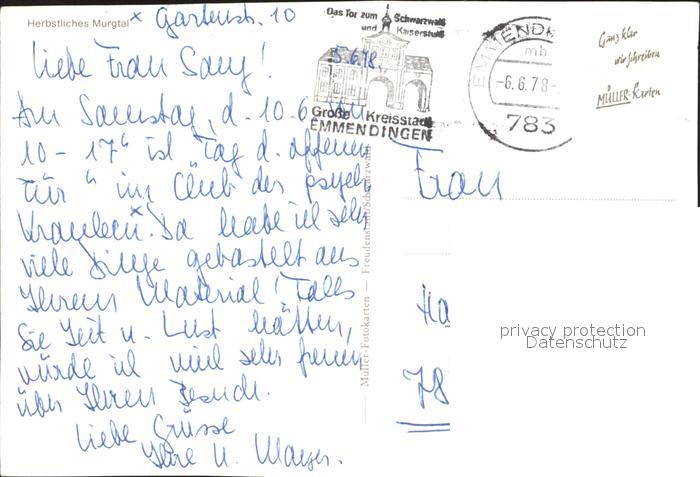 Herbstliches Murgtal
x Gartenstr. 10
5.6.78.
Liebe Frau Sauy!
Am Samstag, d. 10.6. von
10 - 17ʰ ist "Tag d. offenen
Tür" im Club der psych.
Kranken.x Da habe ich sehr
viele Dinge gebastelt aus
Ihrem Material! Falls
Sie Zeit u. Lust hätten,
würde ich mich sehr freuen
über Ihren Besuch.
Liebe Grüsse
Ihre U.
Das Tor zum Schwarzwald
und Kaiserstuhl
Große Kreisstadt
EMMENDINGEN
EMMENDIN
mb
-6.6.78-
783
Ganz klar
wir schreiben
MÜLLER-Karten
Müller-Fotokarten — Freudenstadt/Schwarzwald
Frau
Ha
78
privacy protection
Datenschutz